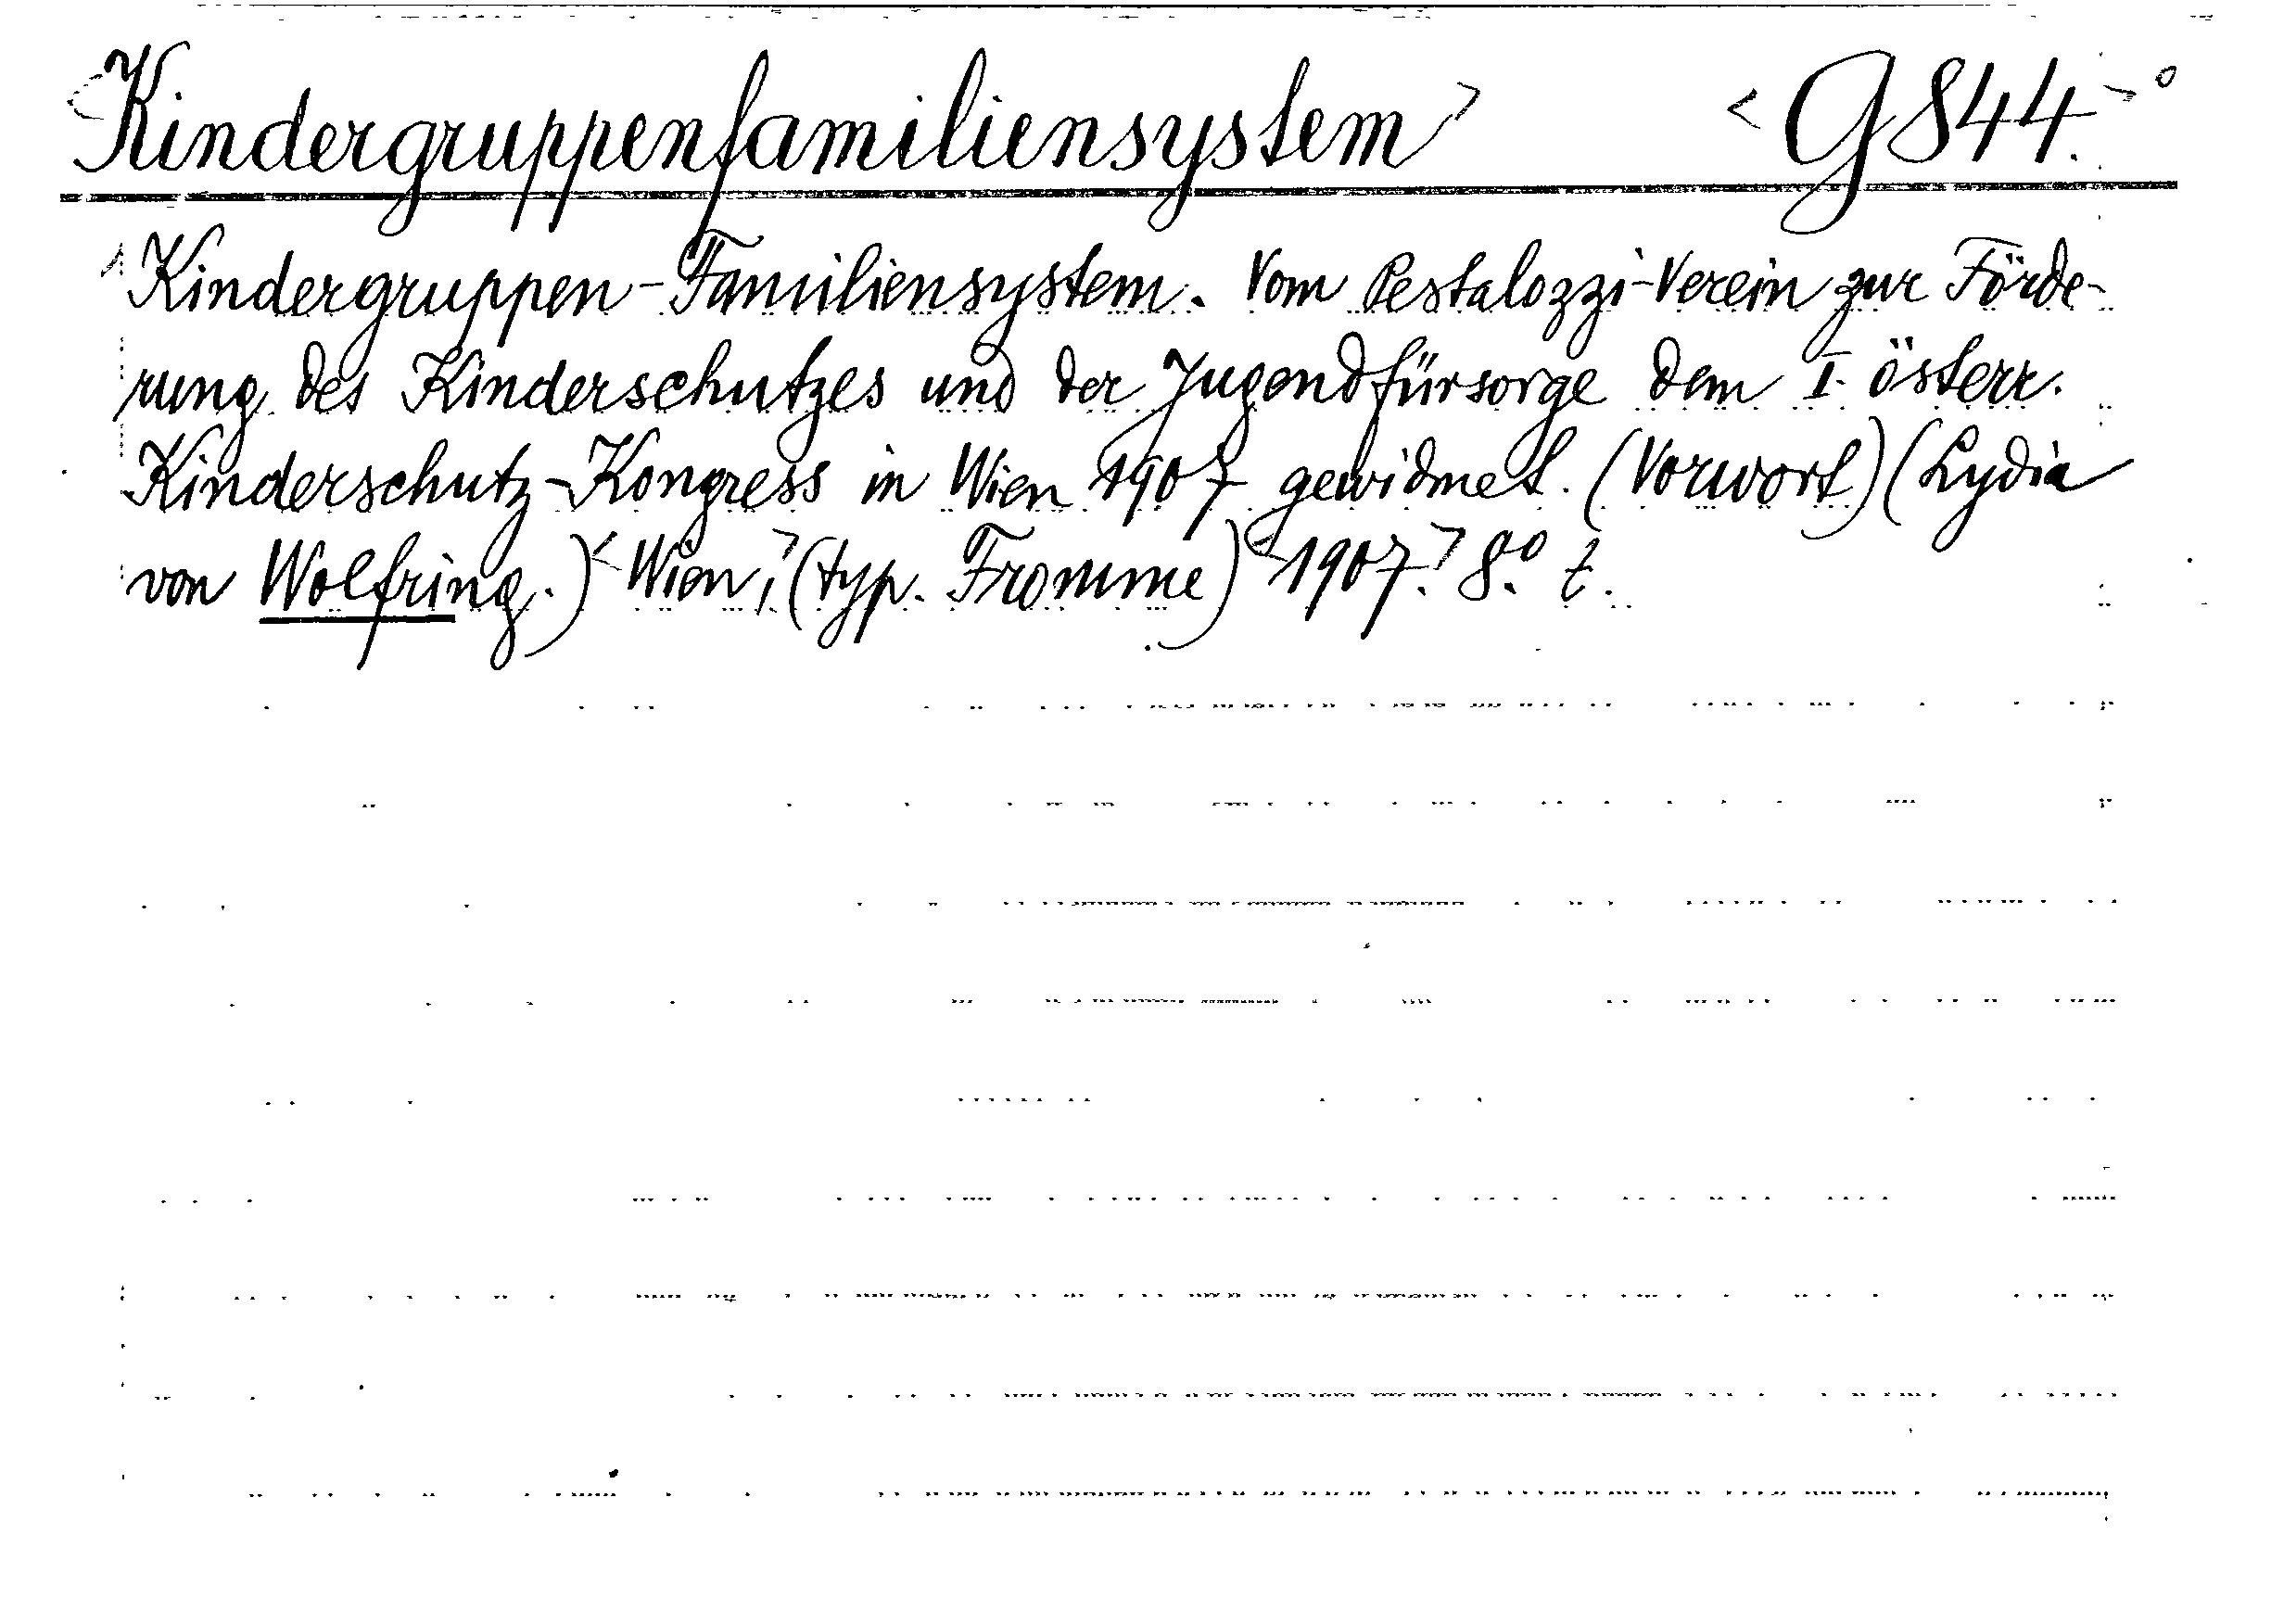 <Kindergruppenfamiliensystem> <G 844.> o
Kindergruppen-Familiensystem. Vom Pestalozzi-Verein zur Förde-
rung des Kinderschutzes und der Jugendfürsorge dem I. österr.
Kinderschutz-Kongress in Wien 1907 gewidmet. (Vorwort) (Lydia
von Wolfring.) <Wien,> (typ. Fromme) <1907.> 8.º